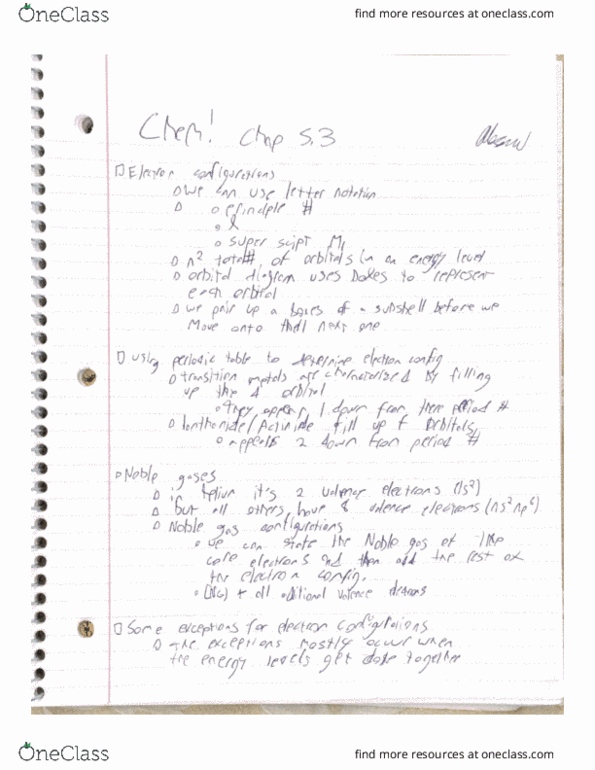 OneClass
find more resources at oneclass.com
Chem! Chap 5.3
Electron configurations
we can use letter notation
principle #
l
super script
n² total # of orbitals in an energy level
orbital diagram uses boxes to represent
each orbital
we pair up a boxes of a subshell before we
move onto the next one
using periodic table to determine electron config
transition metals are characterized by filling
up the d orbital
they appear 1 down from there period #
lanthanide/Actinide fill up f orbitals,
appears 2 down from period #
Noble gases
in helium it's 2 valence electrons (1s²)
but all others have 8 valence electrons (ns²np⁶)
Noble gas configurations
we can state the Noble gas of the
core electrons and then add the rest of
the electron config.
+ all additional valence
Some exceptions for electron configurations
the exceptions mostly occur when
the energy levels get close together
OneClass
find more resources at oneclass.com